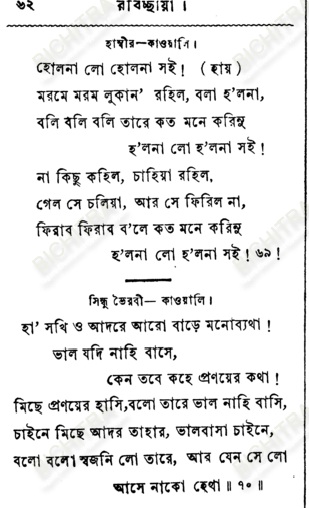 ৬২ রবিচ্ছায়া।
হাম্বীর—কাওয়ালি।
হোলনা লো হোলনা সই! (হায়)
মরমে মরম লুকান' রহিল, বলা হ'লনা,
বলি বলি বলি তারে কত মনে করিনু
হ'লনা লো হ'লনা সই!
না কিছু কহিল, চাহিয়া রহিল,
গেল সে চলিয়া, আর সে ফিরিল না,
ফিরাব ফিরাব ব'লে কত মনে করিনু
হ'লনা লো হ'লনা সই! ৬৯!
সিন্ধু ভৈরবী— কাওয়ালি।
হা' সখি ও আদরে আরো বাড়ে মনোব্যথা!
ভাল যদি নাহি বাসে,
কেন তবে কহে প্রণয়ের কথা!
মিছে প্রণয়ের হাসি,বলো তারে ভাল নাহি বাসি,
চাইনে মিছে আদর তাহার, ভালবাসা চাইনে,
বলো বলো স্বজনি লো তারে, আর যেন সে লো
আসে নাকো হেথা॥ ৭০॥
BICHITRA